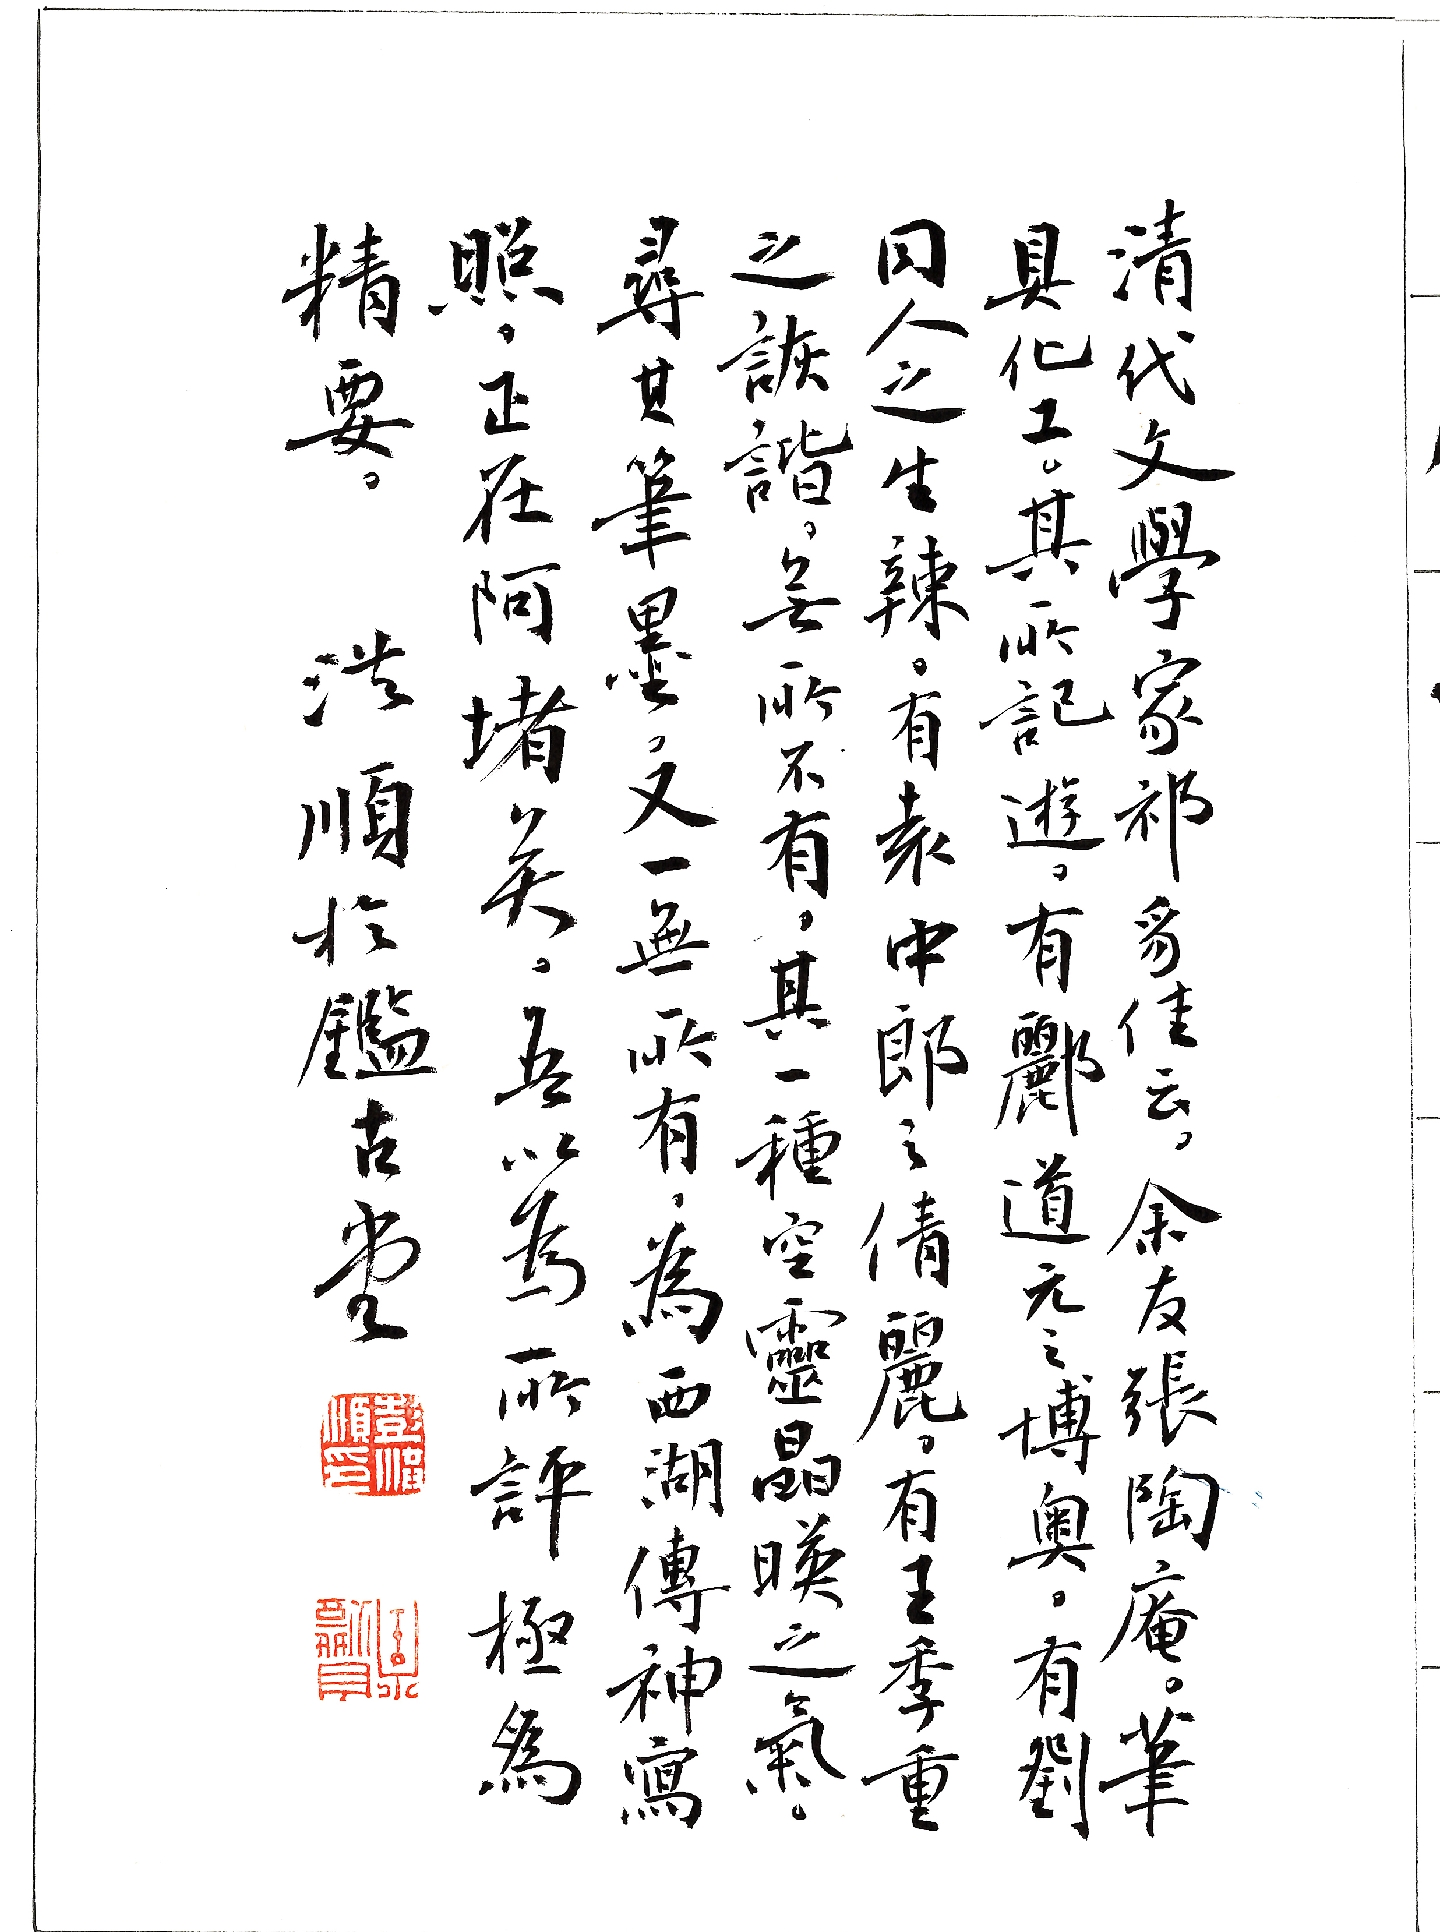 清代文學家祁豸佳云。余友張陶庵。筆
具化工。其所記遊。有酈道元之博奧。有劉
同人之生辣。有袁中郎之倩麗。有王季重
之詼諧。無所不有。其一種空靈晶映之氣。
尋其筆墨。又一無所有。為西湖傳神寫
照。正在阿堵矣。吾以為所評極為
精要。 洪順於鑑古堂